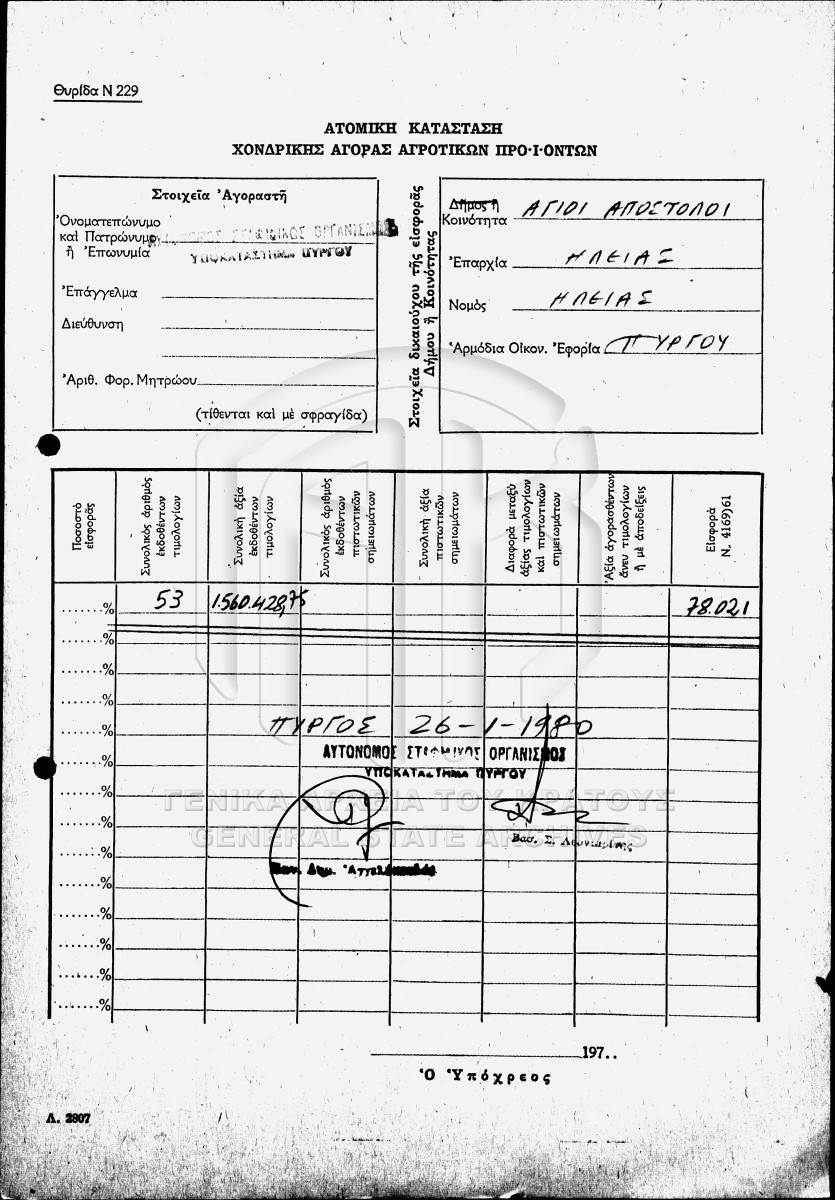 Θυρίδα Ν 229
ΑΤΟΜΙΚΗ ΚΑΤΑΣΤΑΣΗ
ΧΟΝΔΡΙΚΗΣ ΑΓΟΡΑΣ ΑΓΡΟΤΙΚΩΝ ΠΡΟ·Ι·ΟΝΤΩΝ
Στοιχεῖα Ἀγοραστῆ
Ὀνοματεπώνυμο
καὶ Πατρώνυμο
ἢ Ἐπωνυμία
ΣΤΑΦΙΔΙΚΟΣ ΟΡΓΑΝΙΣΜΟΣ
ΥΠΟΚΑΤΑΣΤΗΜΑ ΠΥΡΓΟΥ
Ἐπάγγελμα
Διεύθυνση
Ἀριθ. Φορ. Μητρώου
(τίθενται καὶ μὲ σφραγίδα)
Στοιχεῖα δικαιούχου τῆς εἰσφορᾶς
Δήμου ἢ Κοινότητας
Δῆμος ἢ
Κοινότητα ΑΓΙΟΙ ΑΠΟΣΤΟΛΟΙ
Ἐπαρχία ΗΛΕΙΑΣ
Νομὸς ΗΛΕΙΑΣ
Ἁρμόδια Οἰκον. Ἐφορία ΠΥΡΓΟΥ
Ποσοστὸ εἰσφορᾶς
Συνολικὸς ἀριθμὸς ἐκδοθέντων τιμολογίων
Συνολικὴ ἀξία ἐκδοθέντων τιμολογίων
Συνολικὸς ἀριθμὸς ἐκδοθέντων πιστωτικῶν σημειωμάτων
Συνολικὴ ἀξία πιστωτικῶν σημειωμάτων
Διαφορὰ μεταξὺ ἀξίας τιμολογίων καὶ πιστωτικῶν σημειωμάτων
Ἀξία ἀγορασθέντων ἄνευ τιμολογίων ἢ μὲ ἀποδείξεις
Εἰσφορὰ Ν. 4169)61
.......% 53 1.560.428,75 78.021
.......%
.......%
.......%
.......%
ΠΥΡΓΟΣ 26-1-1980
ΑΥΤΟΝΟΜΟΣ ΣΤΑΦΙΔΙΚΟΣ ΟΡΓΑΝΙΣΜΟΣ
ΥΠΟΚΑΤΑΣΤΗΜΑ ΠΥΡΓΟΥ
.......%
.......%
ΓΕΝΙΚΑ ΑΡΧΕΙΑ ΤΟΥ ΚΡΑΤΟΥΣ
.......%
GENERAL STATE ARCHIVES
Βασ. Σ.
.......%
Παν. Δημ.
.......%
.......%
.......%
.......%
.......%
197..
Ὁ Ὑπόχρεος
Λ. 2807